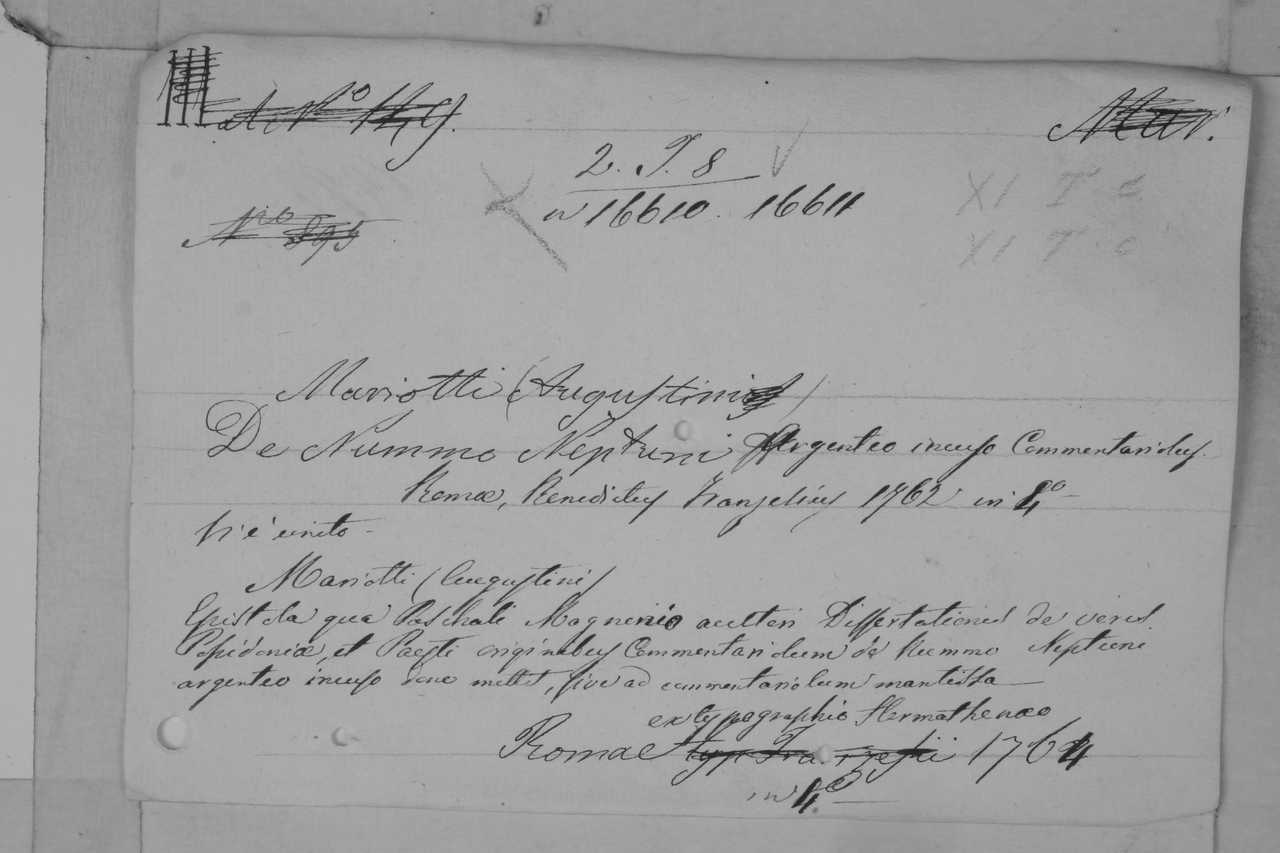 Nro 149. Mar.
2. T. 8
in 16610. 16611
XI T c
Nro 395
XI T c
Mariotti (Augustini)
De Nummo Neptuni Argenteo incuso Commentariolus.
Romæ, Benedictus Franzesius 1762 in 4o
Vi è unito
Mariotti (Augustini)
Epistola qua Paschali Magnonio auctori Dissertationis de veris
Posidoniæ, et Paesti originibus Commentariolum de Nummo Neptuni
argenteo incuso dono mittit, sive ad commentariolum mantissa
ex typographio Hermathenæo
Romae typ. Franzesii 1764
in 4o